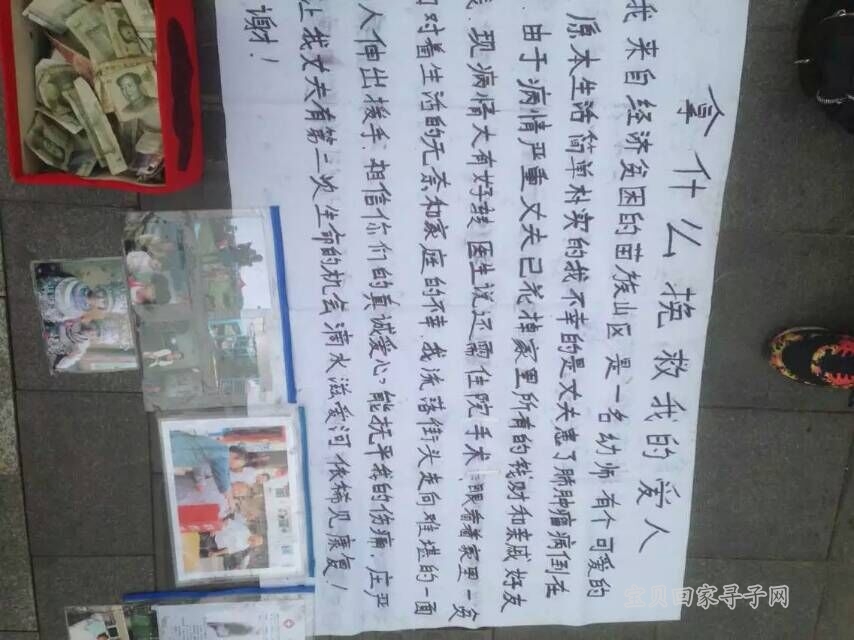 拿什么挽救我的爱人
我来自经济贫困的苗族山区 是一名幼师 有个可爱的
原本生活简单朴实的我不幸的是丈夫患了肺肿瘤病倒在
.由于病情严重丈夫已花掉家里所有的钱财和亲戚好友
.现病情大有好转 医生说还需住院手术,眼看着家里一贫
对着生活的无奈和家庭的不幸.我流落街头走向难堪的一面
人伸出援手.相信你们的真诚爱心,能抚平我的伤痛.庄严
让我丈夫有第二次生命的机会滴水滋爱河依稀见康复!
谢!
宝贝回家寻子网